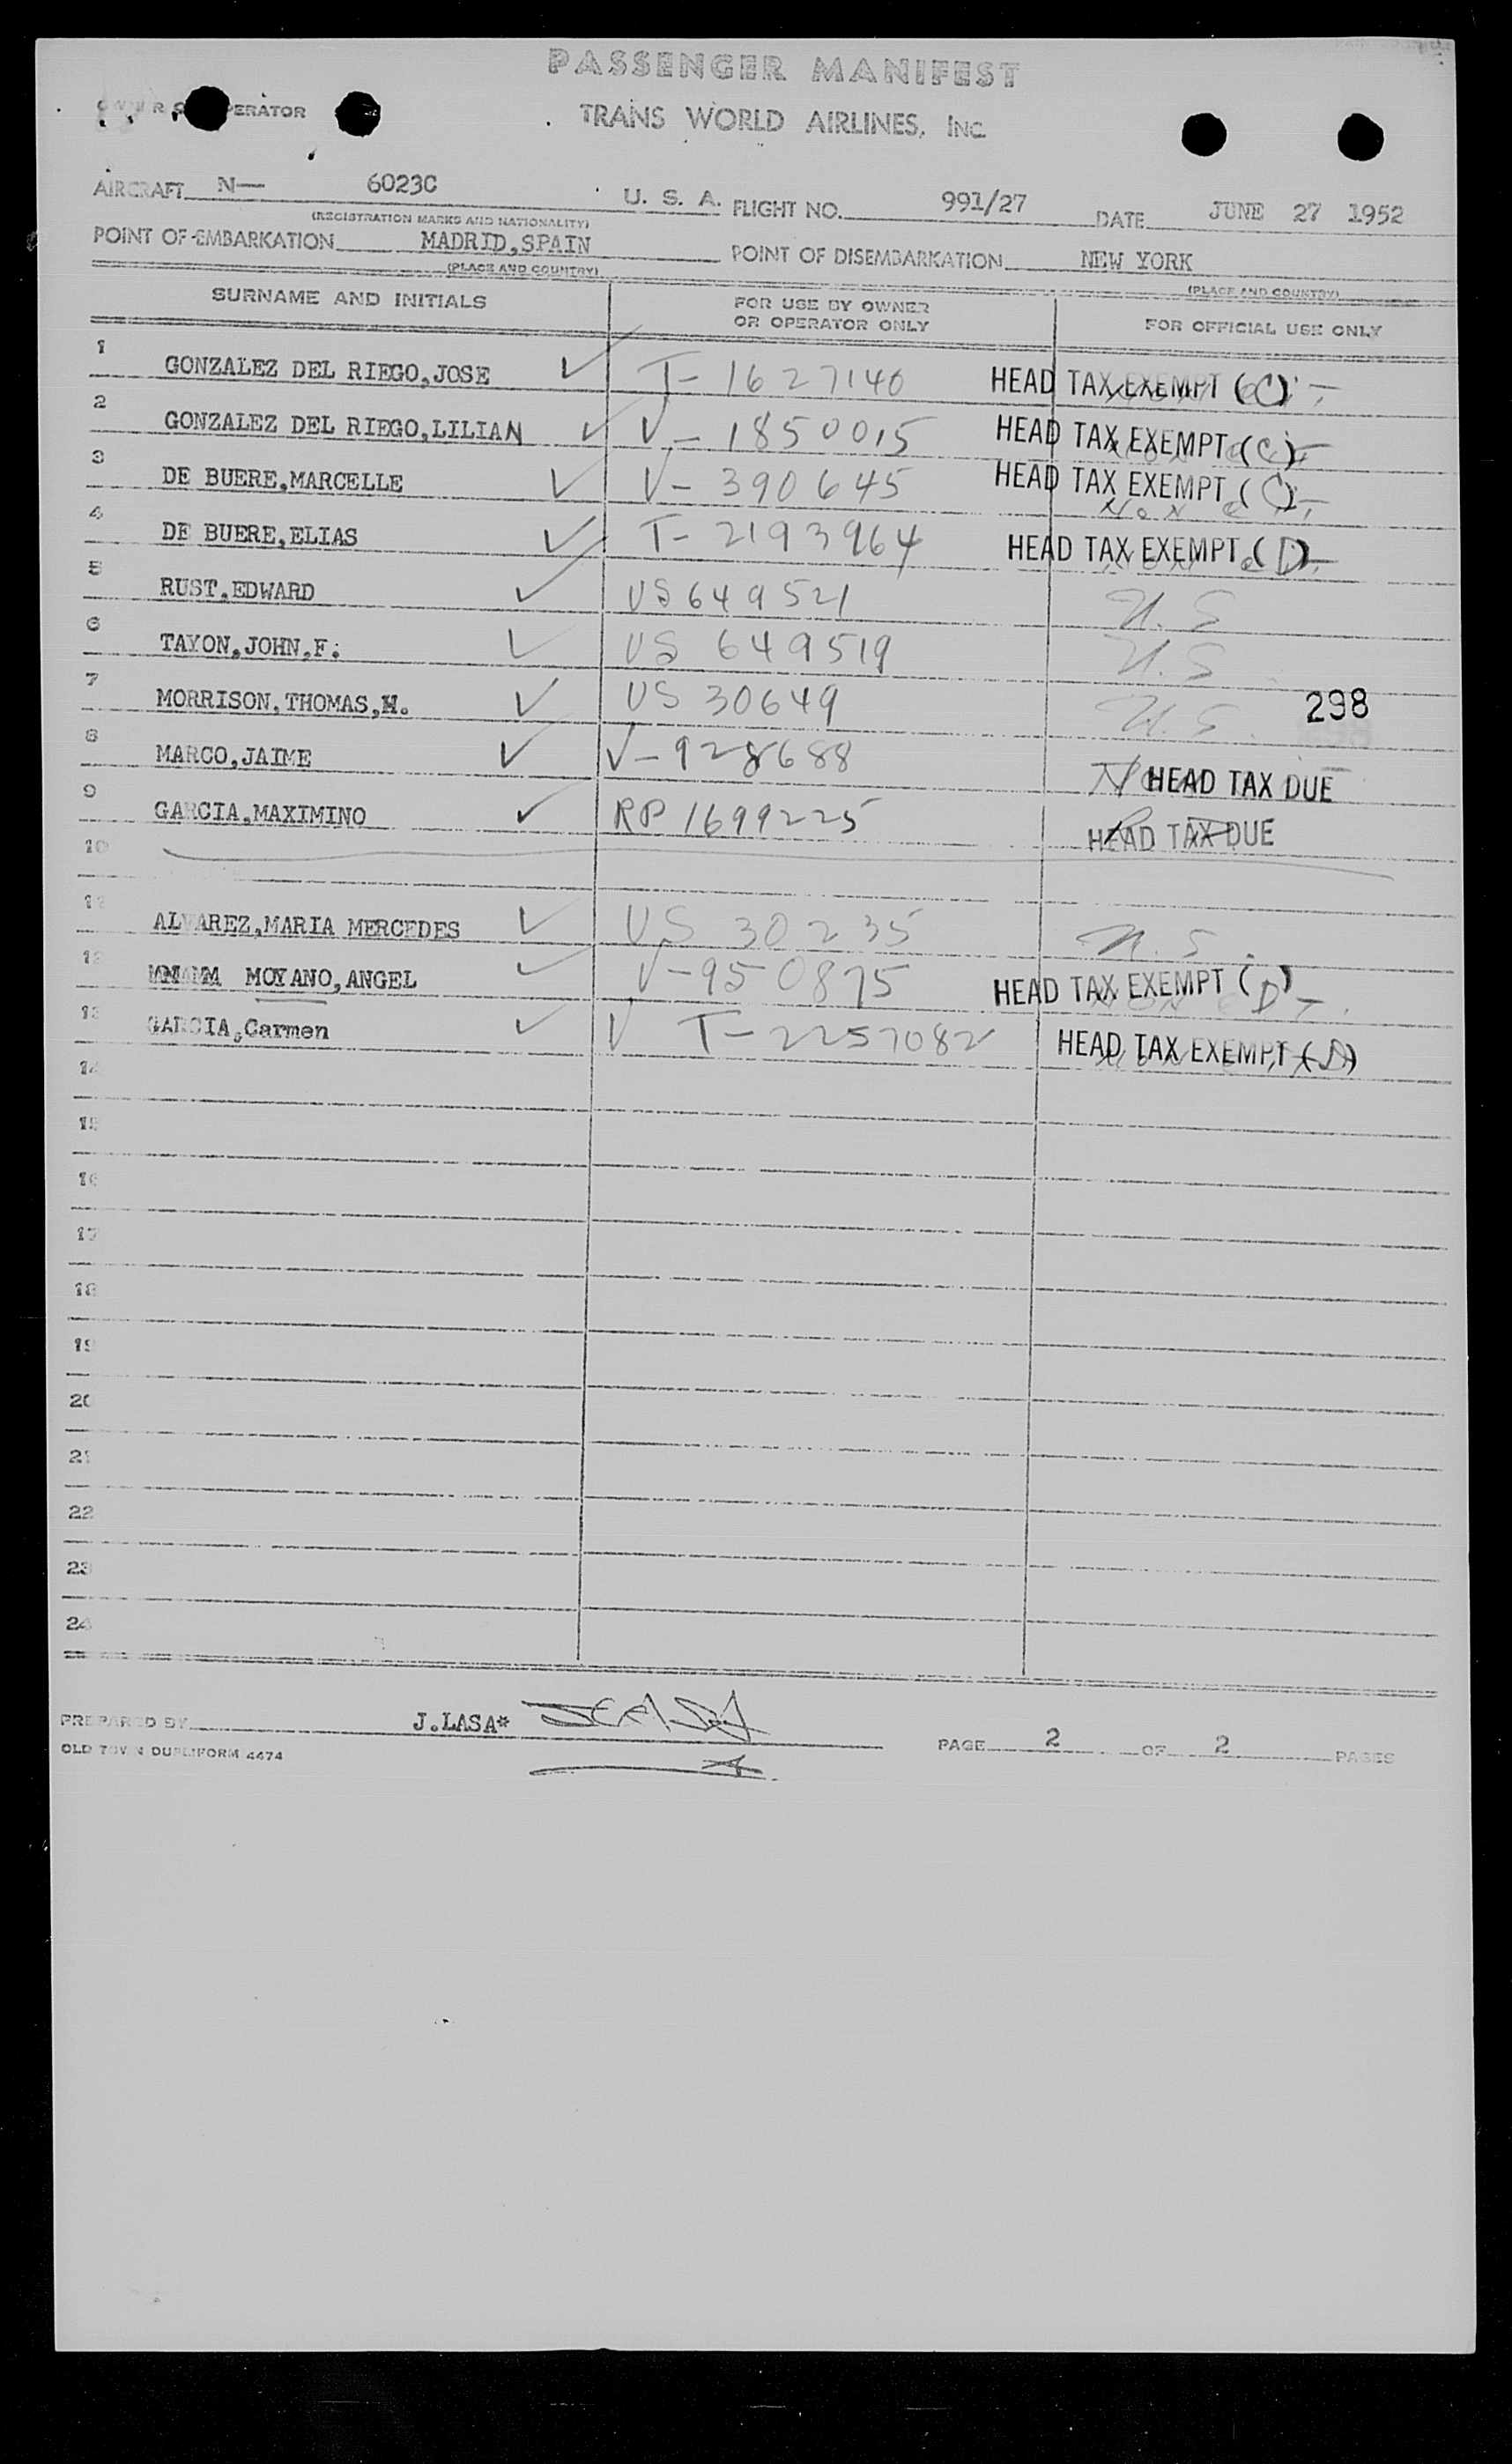 PASSENGER MANIFEST
OWNER OR OPERATOR
TRANS WORLD AIRLINES, INC
AIRCRAFT N— 6023C U. S. A. FLIGHT NO. 991/27 DATE JUNE 27 1952
(REGISTRATION MARKS AND NATIONALITY)
POINT OF EMBARKATION MADRID,SPAIN POINT OF DISEMBARKATION NEW YORK
(PLACE AND COUNTRY) (PLACE AND COUNTRY)
SURNAME AND INITIALS FOR USE BY OWNER OR OPERATOR ONLY FOR OFFICIAL USE ONLY
1 GONZALEZ DEL RIEGO,JOSE ✓ T-1627140 HEAD TAX EXEMPT (C)
2 GONZALEZ DEL RIEGO,LILIAN ✓ V-1850015 HEAD TAX EXEMPT (C)
3 DE BUERE,MARCELLE ✓ V-390645 HEAD TAX EXEMPT (C) Non
4 DE BUERE,ELIAS ✓ T-2193964 HEAD TAX EXEMPT (D)
5 RUST,EDWARD ✓ US 649521 U.S
6 TAYON,JOHN,F. ✓ US 649519 U.S
7 MORRISON,THOMAS,M. ✓ US 30649 U.S. 298
8 MARCO,JAIME ✓ V-928688 HEAD TAX DUE
9 GARCIA,MAXIMINO ✓ RP 1699225 HEAD TAX DUE
10
11 ALVAREZ,MARIA MERCEDES ✓ US 30235 U.S.
12 MOYANO,ANGEL ✓ V-950875 HEAD TAX EXEMPT (D)
13 GARCIA,Carmen ✓ V T-2257082 HEAD TAX EXEMPT (D)
14
15
16
17
18
19
20
21
22
23
24
PREPARED BY J.LASA* PAGE 2 OF 2 PAGES
OLD TOWN DUPLIFORM 4474